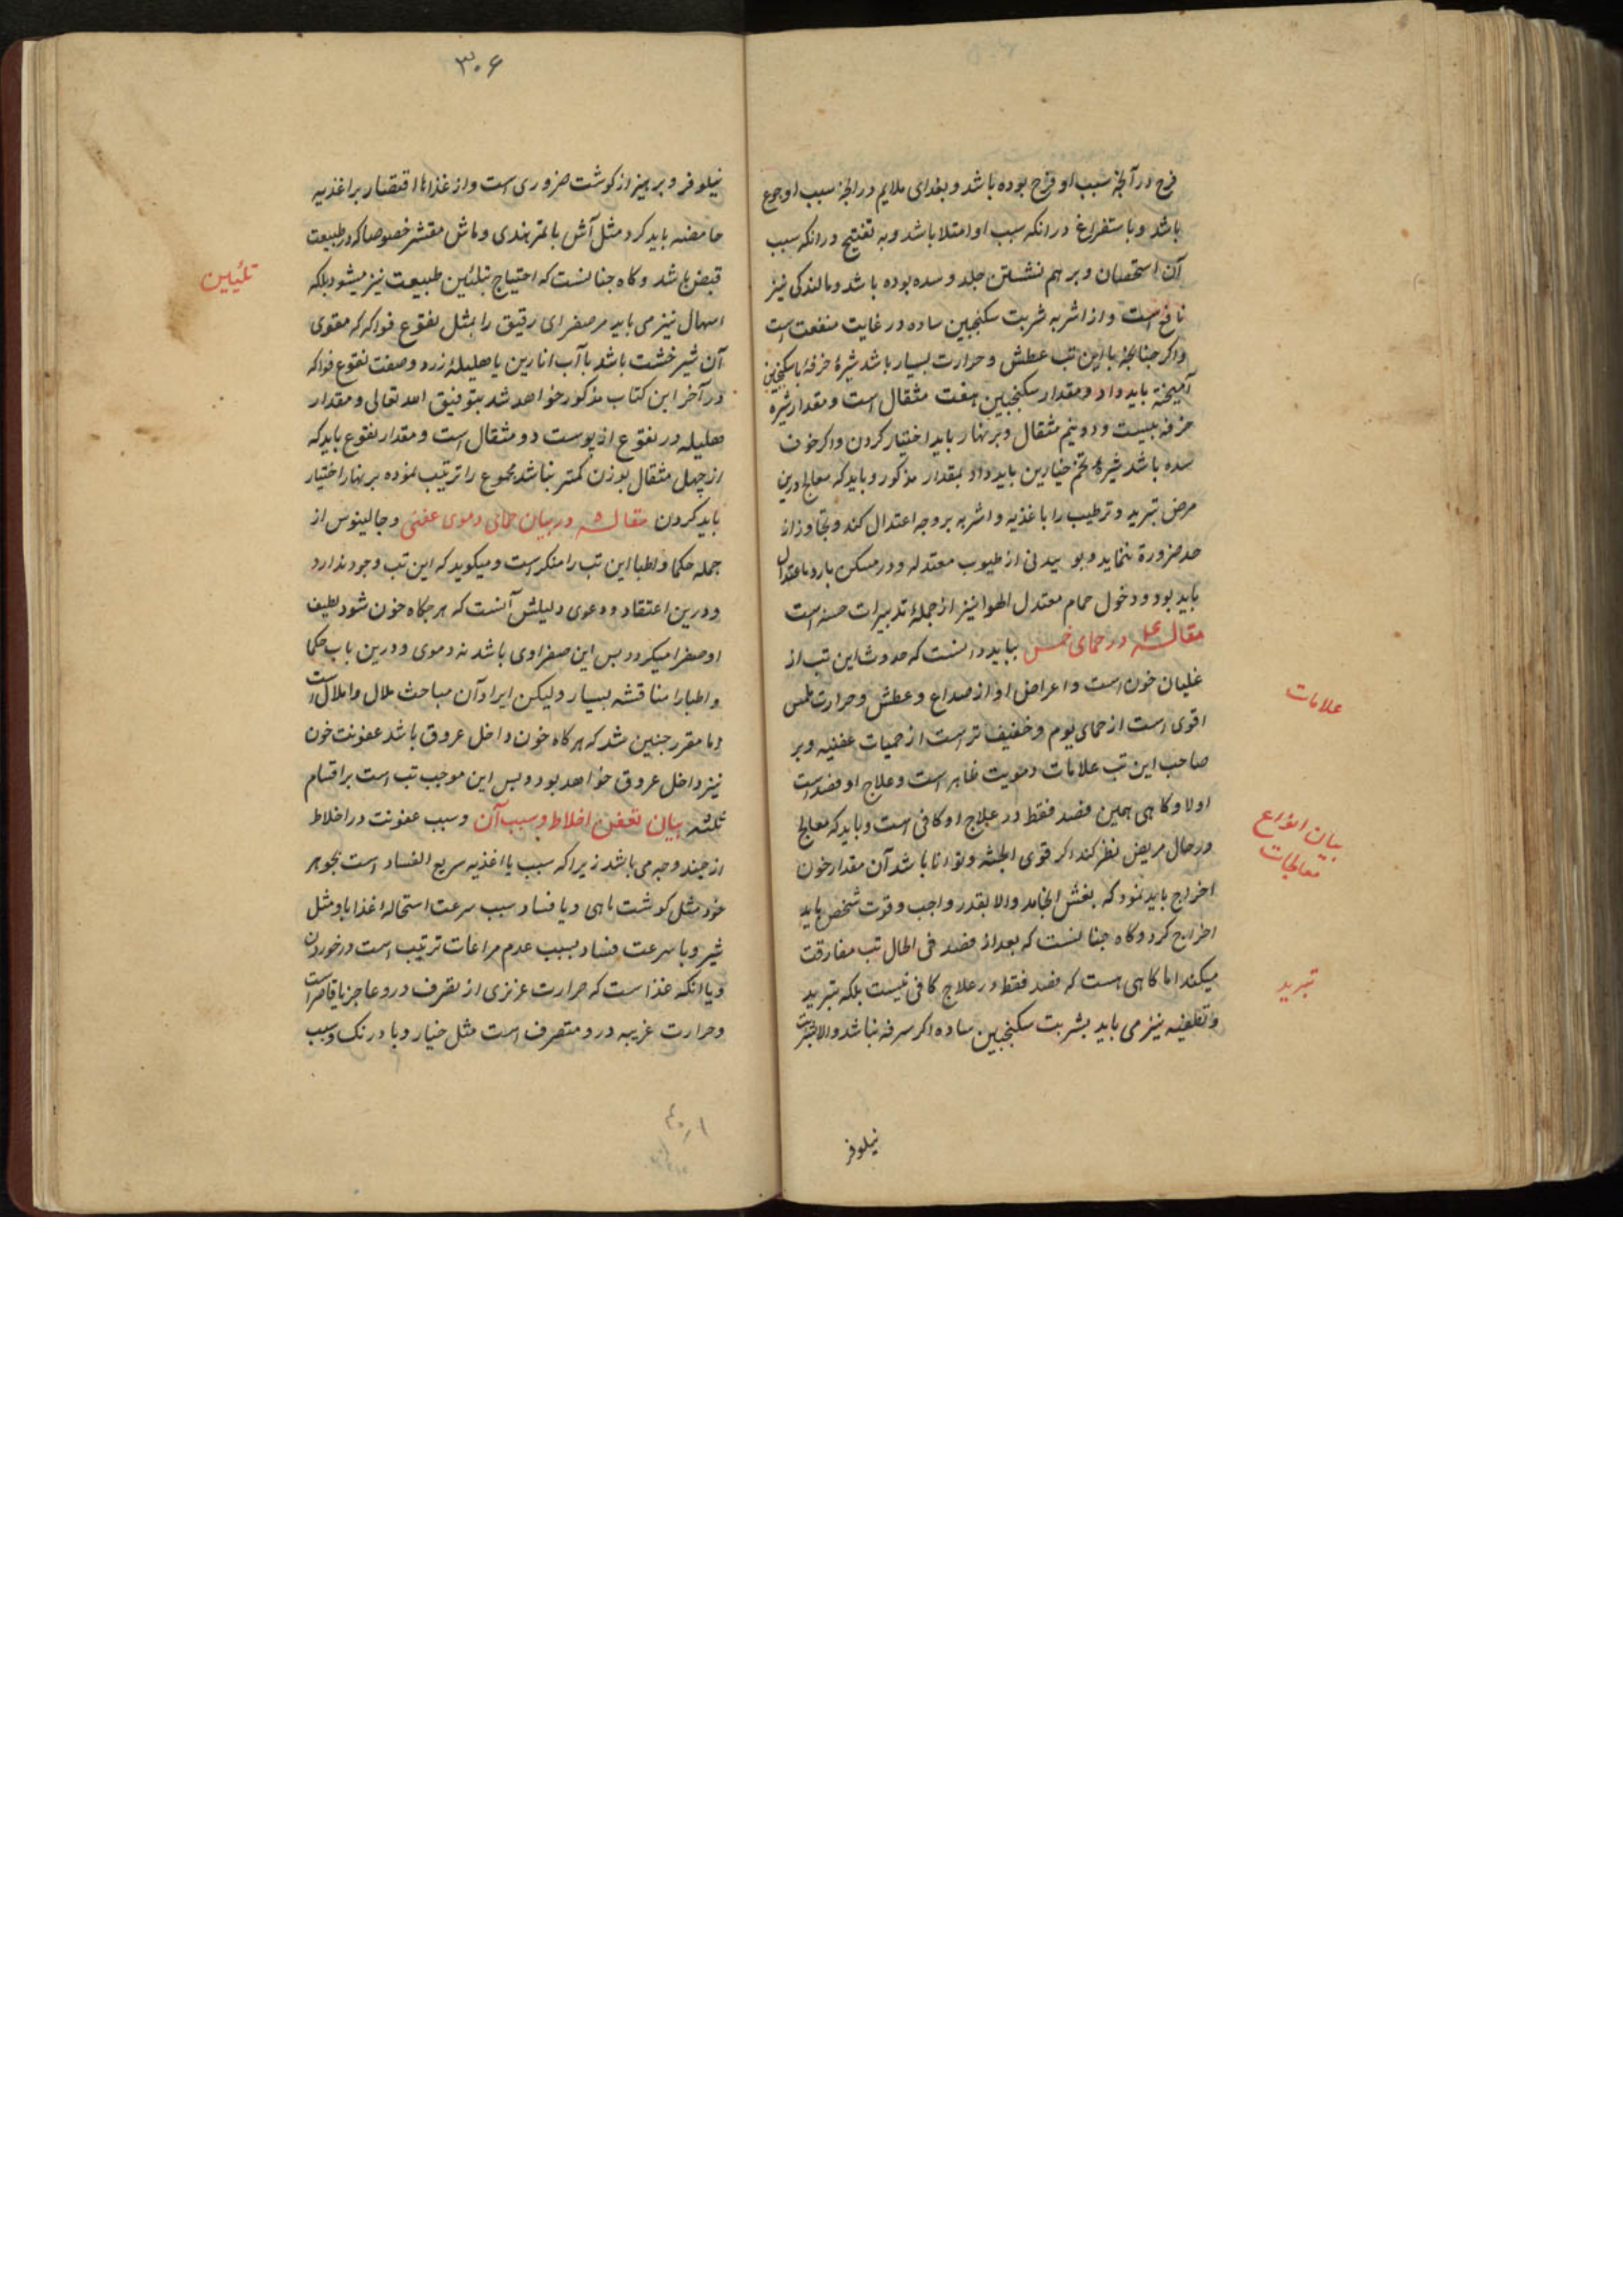 فرح در آنجه سبب او فرح بوده باشد و بغدای ملایم در انجه سبب او جوع
باشد و باستفراغ در انکه سبب او امتلا باشد و به تفتیح در انکه سبب
آن استحصان و بر هم نشستن جلد و سده بوده باشد و مالندکی نیز
نافع است و از اشربه شربت سکنجبین ساده در غایت منفعت است
و اکر جنانجه با این تب عطش و حرارت بسیار باشد شیرهٔ خرفه با سکنجبین
آمیخته باید داد و مقدار سکنجبین هفت مثقال است و مقدار شیره
خرفه بیست و دو نیم مثقال و بر نهار باید اختیار کردن و اکر خوف
سده باشد شیرهٔ تخم خیارین باید داد بمقدار مذکور و باید که معالج درین
مرض تبرید و ترطیب را باغذیه و اشربه بر وجه اعتدال کند و تجاوز از
حد ضرورة ننماید و بوییدنی از طیوب معتدله و در مسکن بارد باعتدال
باید بود و دخول حمام معتدل الهوا نیز از جملهٔ تدبیرات حسنه است
مقاله ۴ در حمای خمس بباید دانست که حدوث این تب از
علامات
غلیان خون است و اعراض او از صداع و عطش و حرارت ملمس
اقوی است از حمای یوم و خفیف تر است از حمیات عفنیه و بر
صاحب این تب علامات دمویت ظاهر است و علاج او فصد است
بیان انواع
معالجات
اولا و کاهی همین فصد فقط در علاج او کافی است و باید که معالج
در حال مریض نظر کند اکر قوی الجثه و توانا باشد آن مقدار خون
اخراج باید نمود که بغشی انجامد والا بقدر واجب و قوت شخص باید
اخراج کرد و کاه جنانست که بعد از فصد فی الحال تب مفارقت
تبرید
میکند اما کاهی هست که فصد فقط در علاج کافی نیست بلکه تبرید
و تطفیه نیز می باید بشربت سکنجبین ساده اکر سرفه نباشد والا بشربت
نیلوفر
۳۰۶
نیلوفر و برهیز از کوشت ضروری است و از غذاها اقتصار بر اغذیه
حامضه باید کرد مثل آش با تمر هندی و ماش مقشر خصوصا که در طبیعت
تلئیین
قبض باشد و کاه جنانست که احتیاج بتلئین طبیعت نیز میشود بلکه
اسهال نیز می باید مر صفرای رقیق را بمثل نقوع فواکه که مقوی
آن شیر خشت باشد با آب انارین یا هلیلهٔ زرد و صفت نقوع فواکه
در آخر این کتاب مذکور خواهد شد بتوفیق الله تعالی و مقدار
هلیله در نقوع از پوست دو مثقال است و مقدار نقوع باید که
از چهل مثقال بوزن کمتر نباشد مجموع را ترتیب نموده بر نهار اختیار
باید کردن مقاله ۵ در بیان حمای دموی عفنی و جالینوس از
جمله حکما و اطبا این تب را منکر است و میکوید که این تب وجود ندارد
و درین اعتقاد و دعوی دلیلش آنست که هر جکاه خون شود لطیف
او صفرا میکردد بس این صفراوی باشد نه دموی و درین باب حکما
و اطبا را مناقشه بسیار و لیکن ایراد آن مباحث ملال و املال است
اما مقرر جنین شد که هر کاه خون داخل عروق باشد عفونت خون
نیز داخل عروق خواهد بود و بس این موجب تب است بر اقسام
ثلثه بیان تعفن اخلاط و سبب آن و سبب عفونت در اخلاط
از جند وجه می باشد زیرا که سبب یا اغذیه سریع الفساد است بجوهر
خود مثل کوشت ماهی و یا فساد سبب سرعت استحالهٔ غذا با و مثل
شیر و با سرعت فساد بسبب عدم مراعات ترتیب است در خوردن
و یا انکه غذا است که حرارت غزیزی از تصرف در و عاجز یا قاصر است
و حرارت غریبه در و متصرف است مثل خیار و بادرنک و سبب